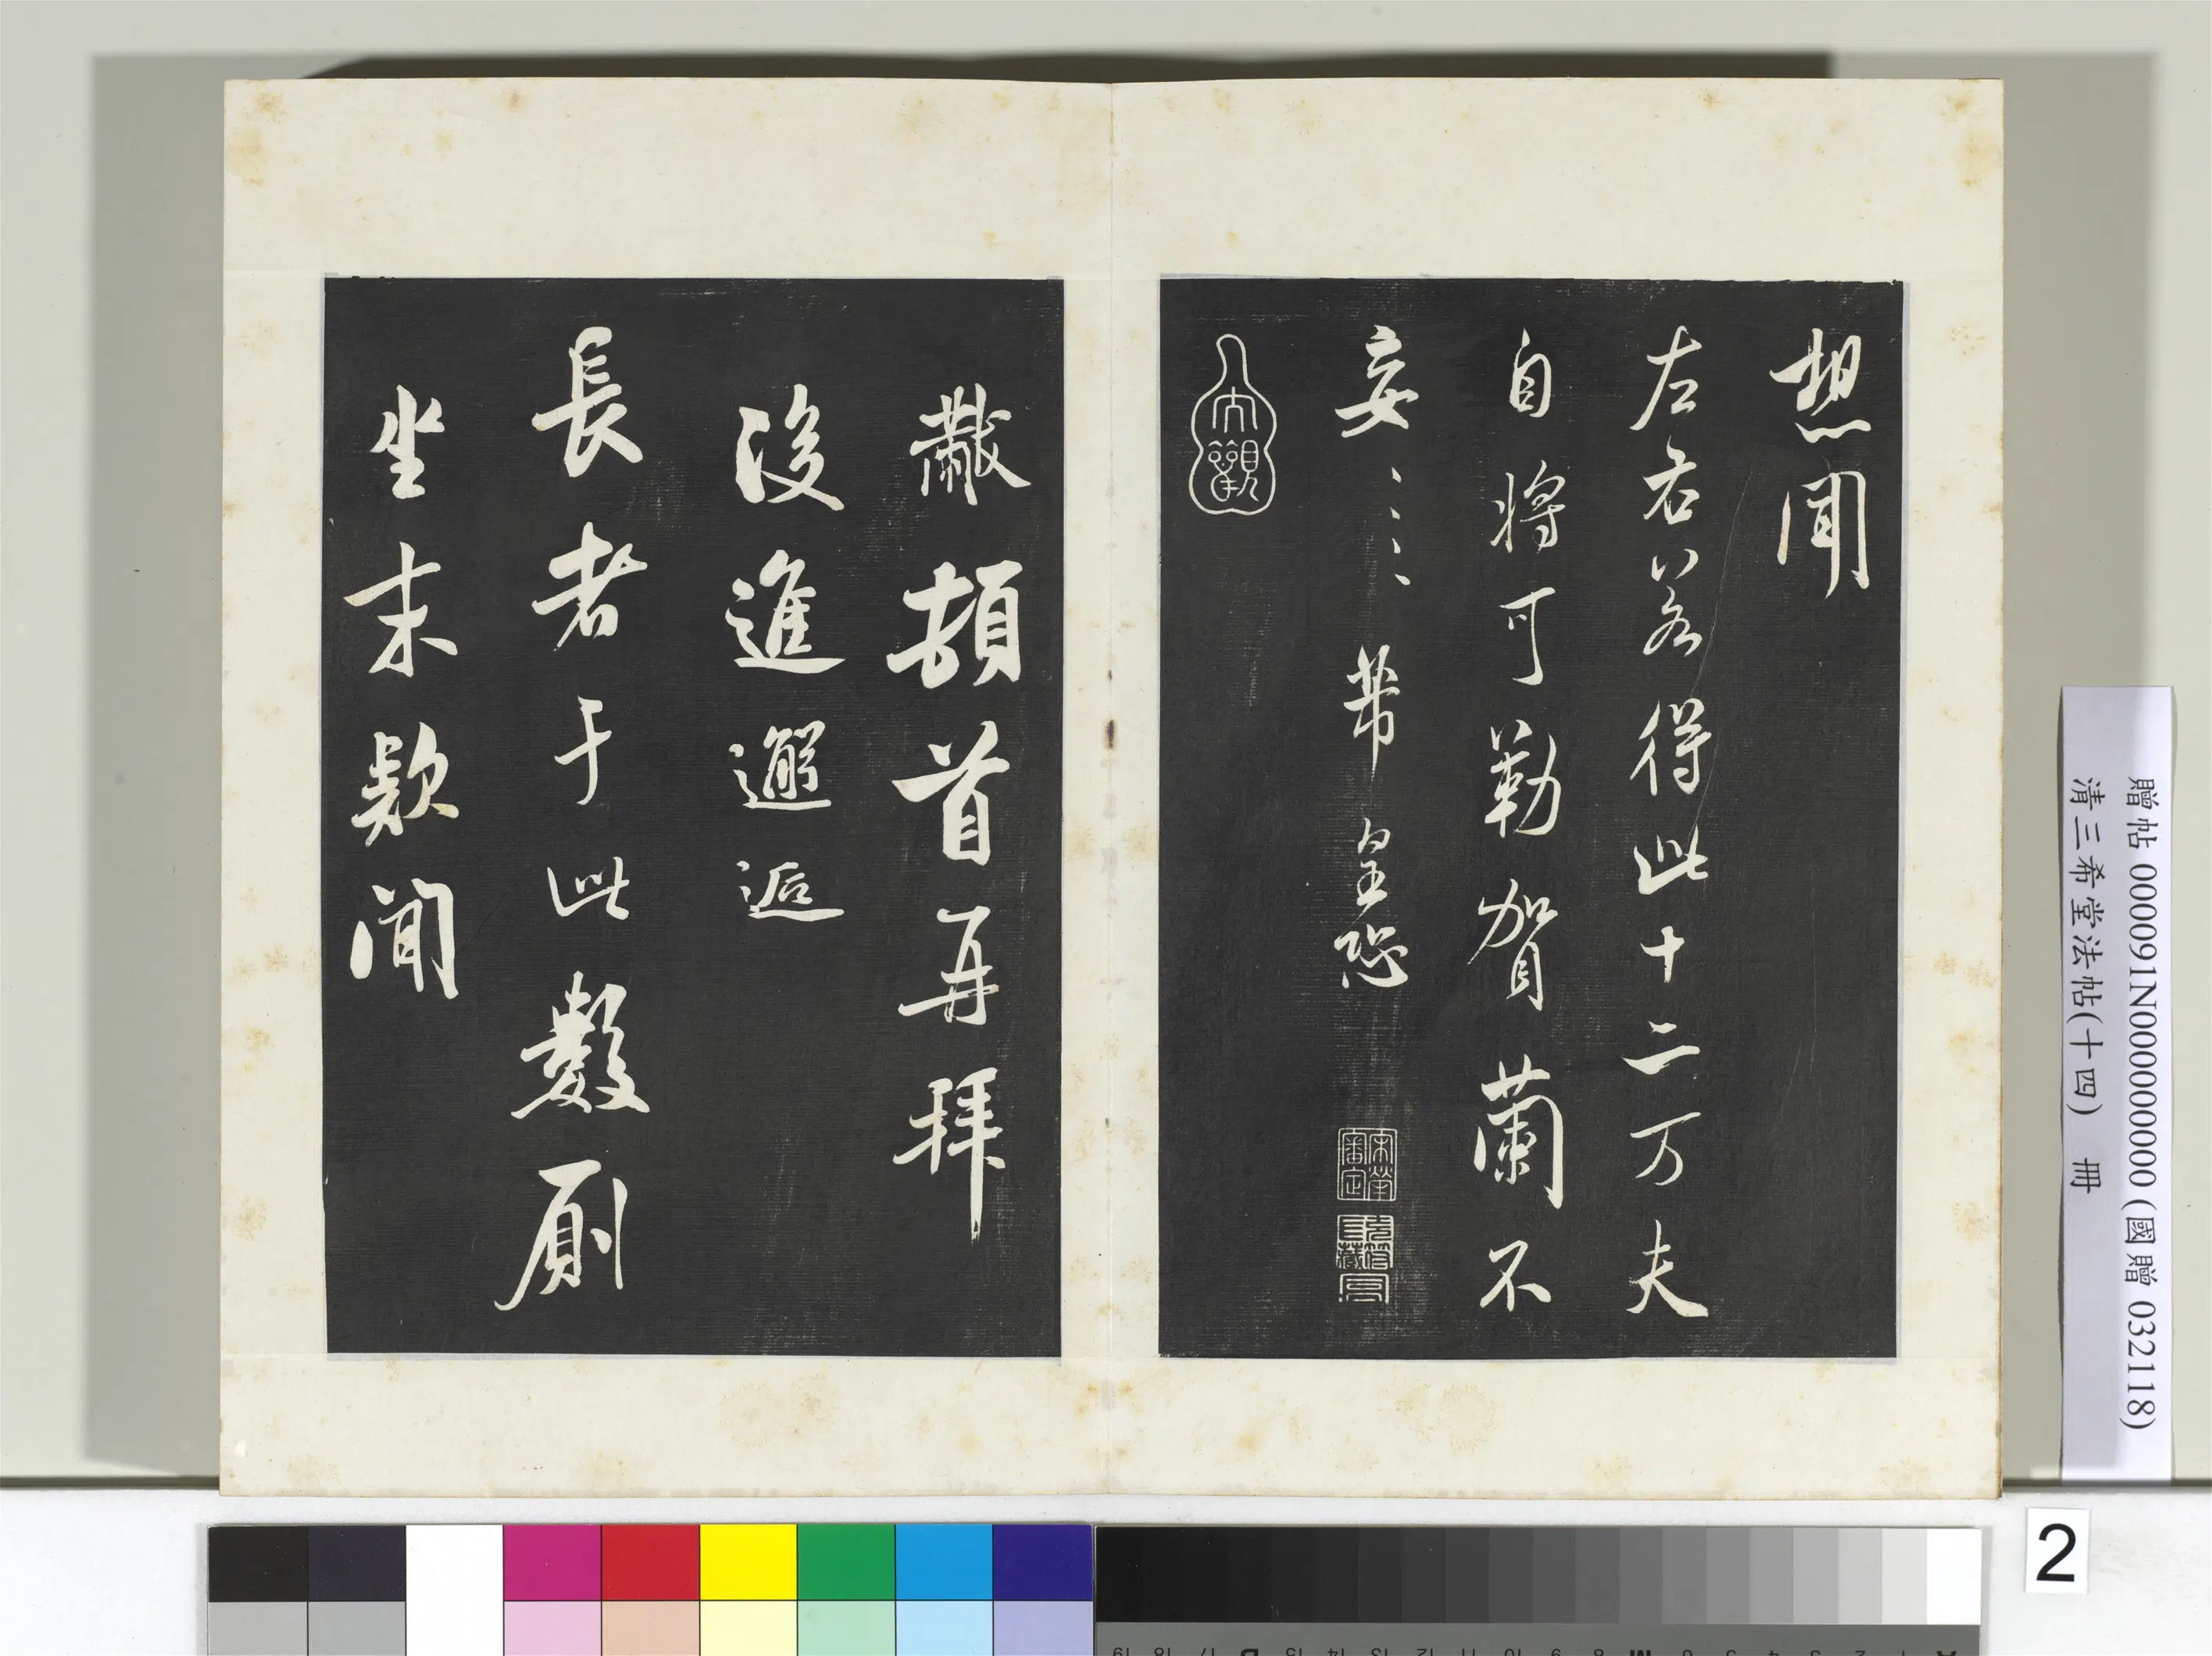 想聞
左右若得此十二万夫
自將可勒賀蘭不
妄〻〻 芾皇恐
大觀
宋犖審定
黻頓首再拜
後進邂逅
長者于此數廁
坐末款聞
贈帖 000091N000000000 (國贈 032118)
清三希堂法帖(十四) 冊
2